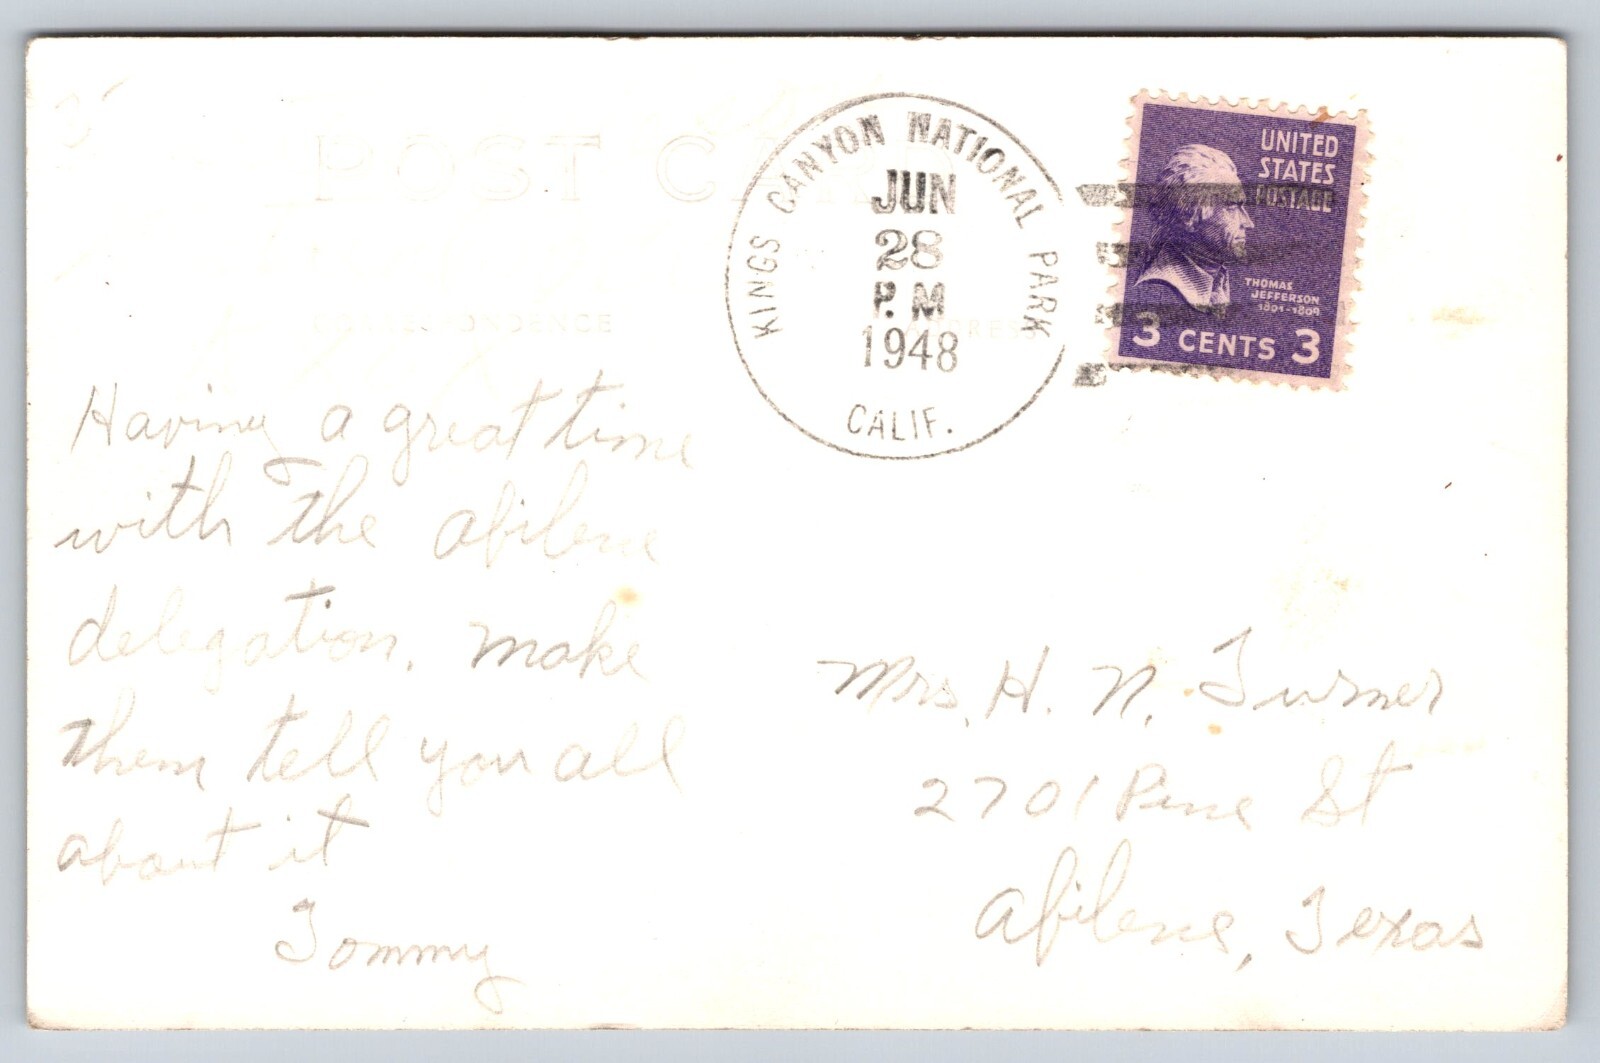 POST CARD
KINGS CANYON NATIONAL PARK
JUN
28
P.M
1948
CALIF.
UNITED
STATES
POSTAGE
THOMAS
JEFFERSON
1801-1809
3 CENTS 3
CORRESPONDENCE
ADDRESS
Having a great time
with the abilene
delegation. Make
them tell you all
about it
Tommy
Mrs. H. N. Turner
2701 Pine St
Abilene, Texas